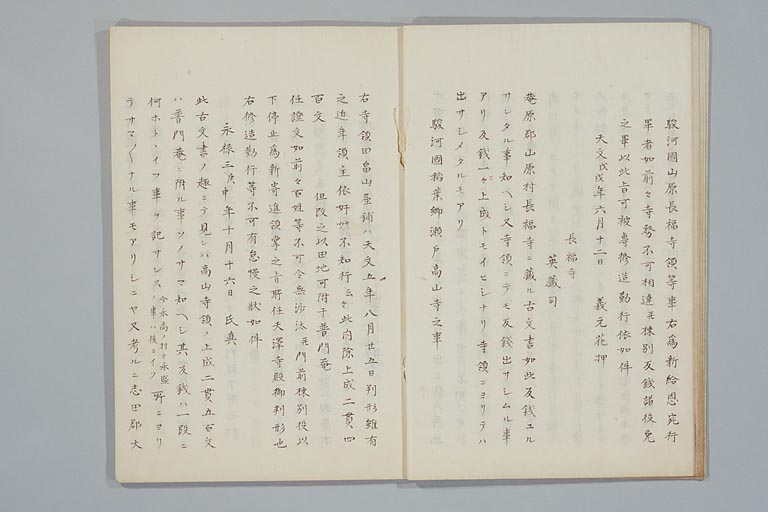 駿河國山原長福寺領等事右爲新給恩宛行
畢者如前々寺務不可相違并棟別反銭諸役免
之畢以此旨可被專修造勤行依如件
天文戊戌年六月十二日 義元花押
長福寺
英藏司
庵原郡山原村長福寺ニ藏ル古文書如此反銭ユル
サレタル事知ヘシ又寺領ニテモ反銭出サレムル事
アリ反銭一ニ上成トモイヒシナリ寺領ニヨリテハ
出サシメタルモアリ
駿河國稲葉郷瀬戸高山寺之事
右寺領田畠山屋鋪ハ天文五年八月廿五日判形雖有
之近年領主依奸 不知行云々此内除上成二貫四
百文 但改之以田地可附于普門庵
任證文如前々百姓等不可令無沙汰并門前棟別役以
下停止爲新寄進領掌之旨所任天澤寺殿御判形也
右修造勤行等不可有怠慢之状如件
永禄三庚申年十月十六日 氏真
此古文書ノ趣ニテ見レハ高山寺領ノ上成二貫五百文
ハ普門庵ニ附ル事ソノサマ知ヘシ其反銭ハ一段ニ
何ホトヽイフ事ヲ記サレス 所ニヨリ
テサマ〱ナル事モアリシニヤ又考ルニ志田郡大